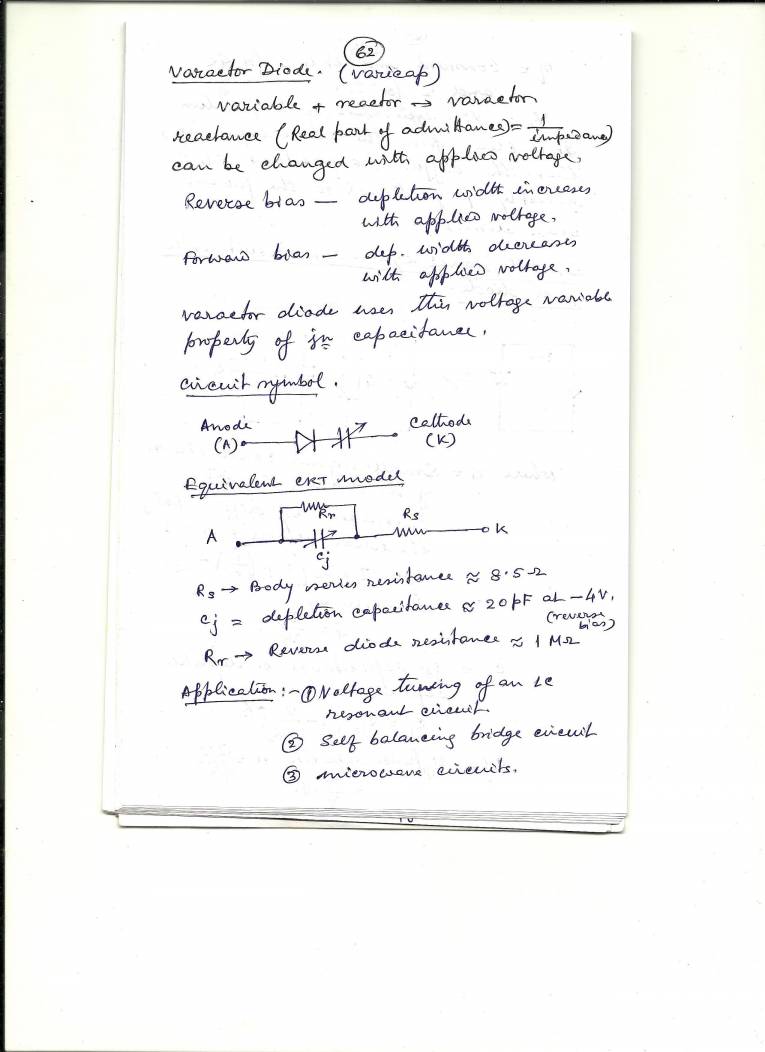 62
Varactor Diode. (varicap)
variable + reactor → varactor
reactance (Real part of admittance) = 1/impedance)
can be changed with applied voltage.
Reverse bias — depletion width increases
with applied voltage.
Forward bias — dep. width decreases
with applied voltage.
varactor diode uses this voltage variable
property of jn capacitance.
circuit symbol.
Anode Cathode
(A) (K)
Equivalent CKT model
Rr Rs
A K
Cj
Rs → Body series resistance ≈ 8.5 Ω
Cj = depletion capacitance ≈ 20 pF at -4V.
(reverse
bias)
Rr → Reverse diode resistance ≈ 1 MΩ
Application :- ① Voltage tuning of an LC
resonant circuit.
② Self balancing bridge circuit
③ microwave circuits.